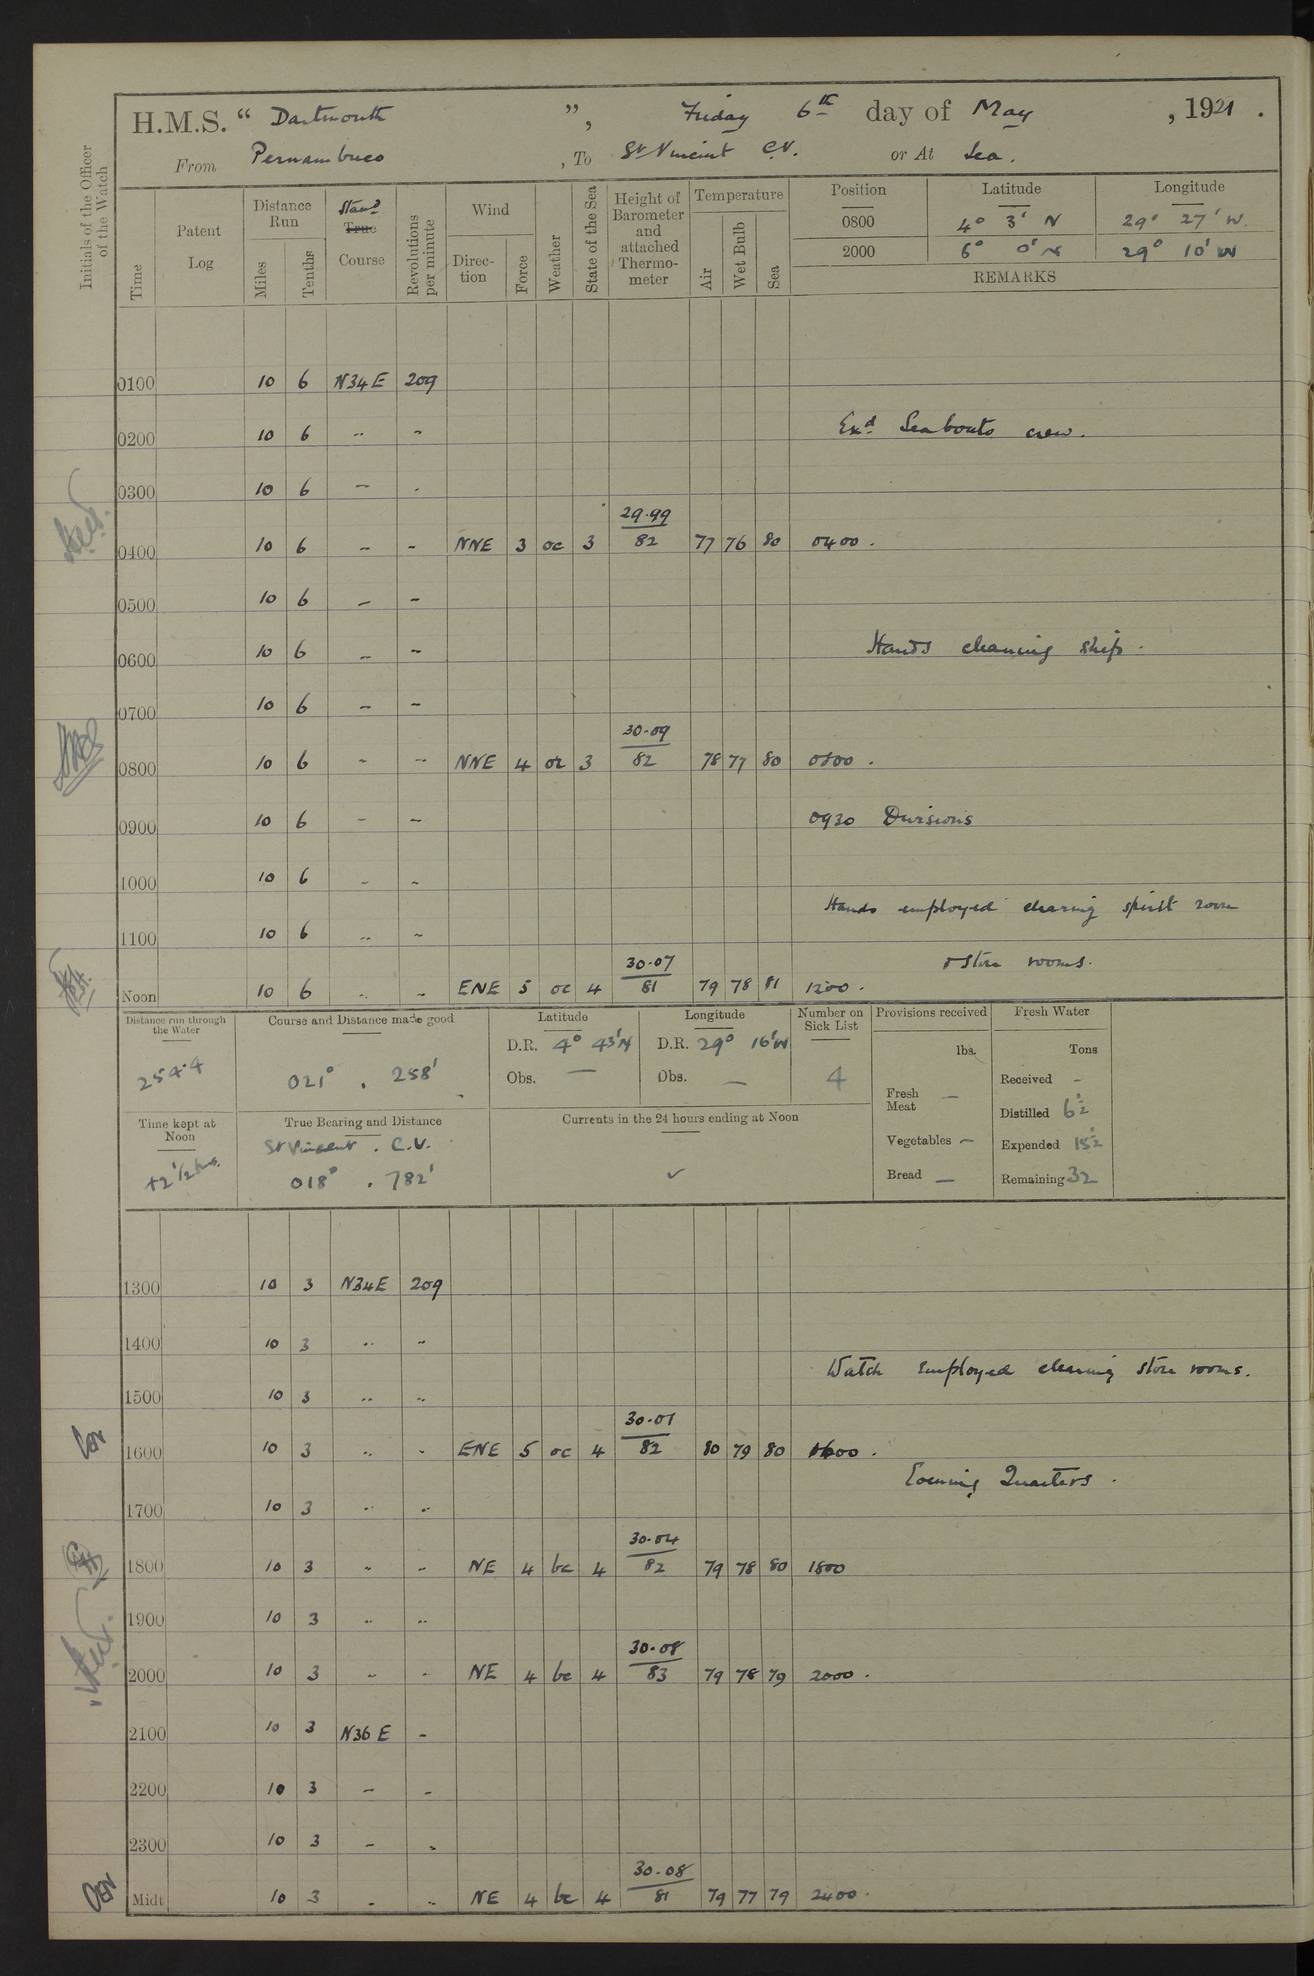 H.M.S. “ Dartmouth ”, Friday 6th day of May , 1921 .
From Pernambuco , To St Vincent C.V. or At Sea .
Initials of the Officer of the Watch
Time
Patent Log
Distance Run
Miles
Tenths
Stand
True
Course
Revolutions per minute
Wind
Direction
Force
Weather
State of the Sea
Height of Barometer and attached Thermometer
Temperature
Air
Wet Bulb
Sea
Position Latitude Longitude
0800 4° 3' N 29° 27' W.
2000 6° 0' N 29° 10' W
REMARKS
0100 10 6 N34E 209
0200 10 6 " " Exd Seaboats crew.
0300 10 6 " "
29.99
0400 10 6 " " NNE 3 oc 3 82 77 76 80 0400 .
0500 10 6 " "
0600 10 6 " " Hands cleaning ship .
0700 10 6 " "
30.09
0800 10 6 " " NNE 4 oc 3 82 78 77 80 0800 .
0900 10 6 " " 0930 Divisions
1000 10 6 " "
Hands employed clearing spirit room
1100 10 6 " "
& store rooms.
30.07
Noon 10 6 " " ENE 5 oc 4 81 79 78 81 1200 .
Distance run through the Water
254.4
Course and Distance made good
021° . 258'
Latitude
D.R. 4° 43' N
Obs. —
Longitude
D.R. 29° 16' W
Obs. —
Number on Sick List
4
Provisions received
lbs.
Fresh Meat —
Vegetables —
Bread —
Fresh Water
Tons
Received -
Distilled 6½
Expended 15½
Remaining 32
Time kept at Noon
+2 1/2 hrs.
True Bearing and Distance
St Vincent . C.V.
018° . 782'
Currents in the 24 hours ending at Noon
✓
1300 10 3 N34E 209
1400 10 3 " "
Watch employed clearing store rooms.
1500 10 3 " "
30.01
1600 10 3 " " ENE 5 oc 4 82 80 79 80 1600 .
Evening Quarters .
1700 10 3 " "
30.04
1800 10 3 " " NE 4 bc 4 82 79 78 80 1800
1900 10 3 " "
30.08
2000 10 3 " " NE 4 bc 4 83 79 78 79 2000 .
2100 10 3 N36E "
2200 10 3 " "
2300 10 3 " "
30.08
Midt 10 3 " " NE 4 bc 4 81 79 77 79 2400 .